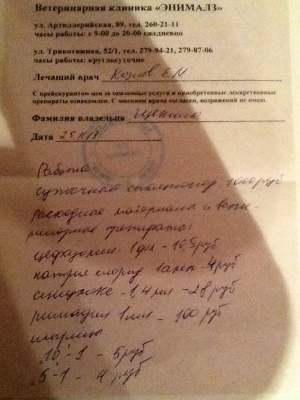 Ветеринарная клиника «ЭНИМАЛЗ»
ул. Артиллерийская, 89, тел. 260-21-11
часы работы: с 9-00 до 20-00 ежедневно
ул. Трикотажная, 52/1, тел. 279-94-21, 279-87-06
часы работы: круглосуточно
Лечащий врач Козлов Е М
С прейскурантом цен за оказанные услуги и приобретенные лекарственные
препараты ознакомлен. С мнением врача согласен, возражений не имею.
Фамилия владельца
Дата
Работа:
суточный стационар - 1000 руб
Расходные материалы и вете-
ринарные препараты:
цефазолин - 1 фл - 10,5 руб
натрия хлорид 1 амп - 4 руб
синулокс - 1,4 мл - 28 руб
римадил 1 мл - 100 руб
шприцы:
"10" - 1 - 5 руб
"5" - 1 - 4 руб